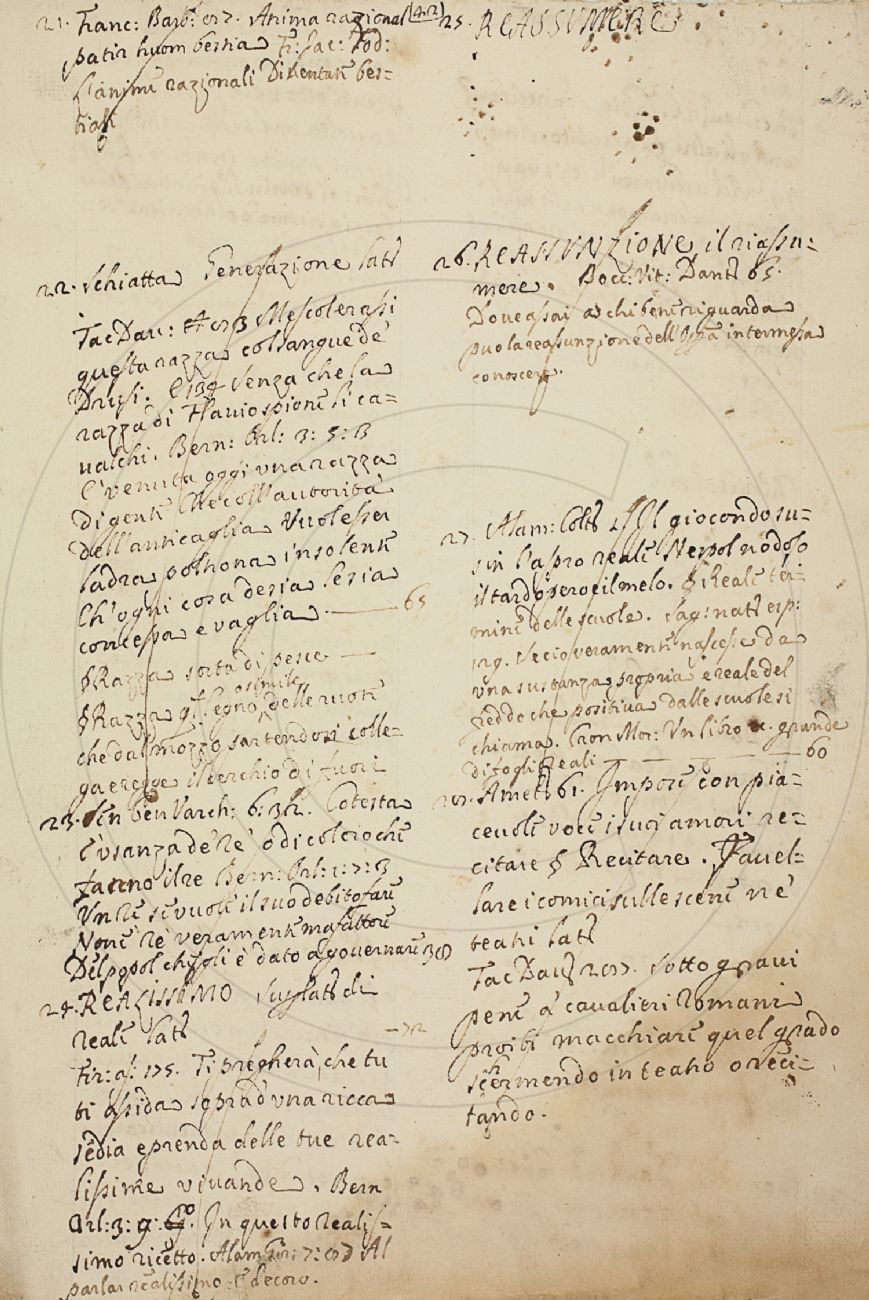 21. Franc: Barb: 257. Anima razional
patir huom bestia Fr: Jac: Tod:
L'anime razionali Diventate bes-
tiali
22. Schiatta Generazione lat:
Tac Dav: Mescolerassi
questa razza col sangue de'
Drusi. 139 Senza che la
razza di Flavio spione si ca-
valchi. Bern: Orl: 3: 5: 3
E' venuta oggi una razza
Di gente che coll'autorità
Dell'anticaglia Vuol esser
ladra poltrona insolente
Ch'ogni cosa deria le sia
concessa e vaglia. — 65
§ Razza sorta di pesce —
§ Razza qs. legno delle ruote
o simile
che dal mozzo partendosi colle-
ga e regge il cerchio di fuori
23. Sen ben Varch: 6: 32. Cotesta
è usanza de' Re' o di coloro che
fanno il re Bern: Orl: 1: 7: 3
Un Re se vuole il suo debito fare
Non è re veramente ma fattore
Del popol che gli è dato a governare 30
24. REALISSIMO Suplat: di
reale lat: — 72
Fir: as: 175. Ti pregherà, che tu
ti assida sopra d'una ricca
sedia e prenda delle tue rea-
lissime vivande. Bern
Orl: 3: 9: In questo realis-
simo ricetto. Alam Gir: 7: 27 Al
parlar realissimo: E decoro.
(42) 25. REASSUMERE
26. REASSUNZIONE il riassu-
mere. Bocc: Vit: Dant: 65.
Dove assai a chi bene riguarda
puo la reassunzione dell'opra intermessa
conoscere.
27. Alam: Colt: Il giocondo su-
sin l'aspro reale Nespol nodoso
il tardo pero e il melo. § Reale ter-
mine delle scuole. Sag: nat: esp:
149. Se cio veramente nascesse da
una sustanza propria e reale del
freddo che positiva dalle scuole si
chiama. Cron Mor: Un libro &c. grande
Di fogli Reali — — — — — 60
28. Amet: 61. Impose con pia-
cevole voce i suoi amori re-
citare § Recitare. Favel-
lare i comici sulle scene ne'
teatri lat:
Tac Dav: 257. Sotto gravi
pene a' cavalieri Romani
proibi macchiare quel grado
schermendo in teatro o reci-
tando.